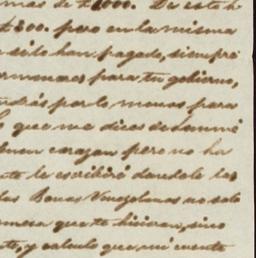 mas de £1000. De este h
£200. pero en la misma
sólo han pagado, siempre
para tu gobierno,
por lo menos para
que me dices de
corazon pero no ha
te le escribiré dandole las
las Bonos Venezolanos no solo
que te hicieran, sino
te, y calculo que mi cuenta